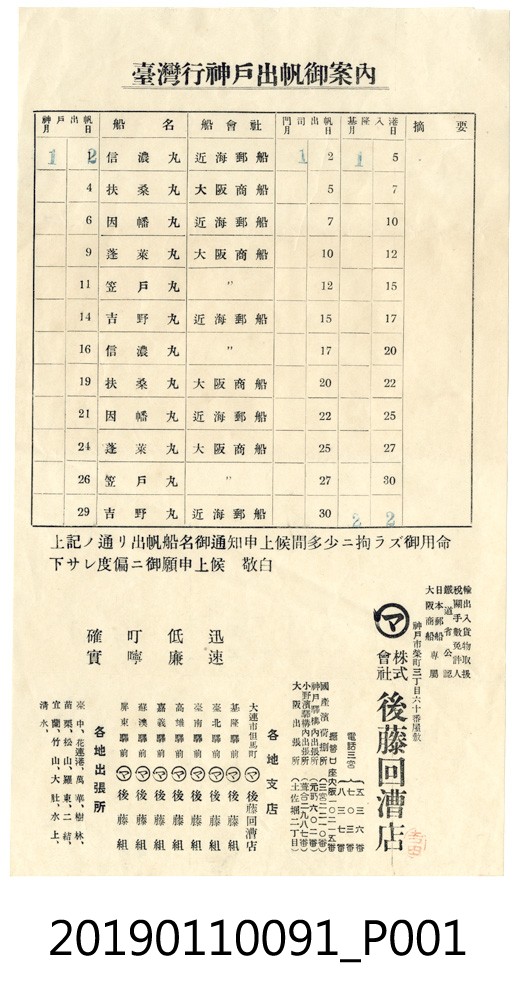 臺灣行神戶出帆御案內
神戶出帆月日 船名 船會社 門司出帆月日 基隆入港月日 摘要
1 2 信濃丸 近海郵船 1 2 1 5
4 扶桑丸 大阪商船 5 7
6 因幡丸 近海郵船 7 10
9 蓬萊丸 大阪商船 10 12
11 笠戶丸 〃 12 15
14 吉野丸 近海郵船 15 17
16 信濃丸 〃 17 20
19 扶桑丸 大阪商船 20 22
21 因幡丸 近海郵船 22 25
24 蓬萊丸 大阪商船 25 27
26 笠戶丸 〃 27 30
29 吉野丸 近海郵船 30 2 2
上記ノ通リ出帆船名御通知申上候間多少ニ拘ラズ御用命
下サレ度偏ニ御願申上候 敬白
迅速
低廉
叮嚀
確實
輸出入貨物取扱
稅關手數免許人
鐵道省公認
日本郵船
大阪商船
專屬
神戶市榮町三丁目六十番屋敷
マ
株式會社
後藤回漕店
電話三宮
五三六番
七〇番
八三七番
振替口座大阪一〇二一五番
國產濱荷捌所
神戶驛構內出張所
小野濱驛構內出張所
大阪出張所(土佐堀二丁目)
各地支店
大連市但馬町 マ 後藤回漕店
基隆驛前 マ 後藤組
臺北驛前 マ 後藤組
臺南驛前 マ 後藤組
高雄驛前 マ 後藤組
嘉義驛前 マ 後藤組
蘇澳驛前 マ 後藤組
屏東驛前 マ 後藤組
各地出張所
臺中、花蓮港、萬華、樹林、
苗栗、松山、羅東、二結、
宜蘭、竹山、大肚、水上、
清水、
20190110091_P001